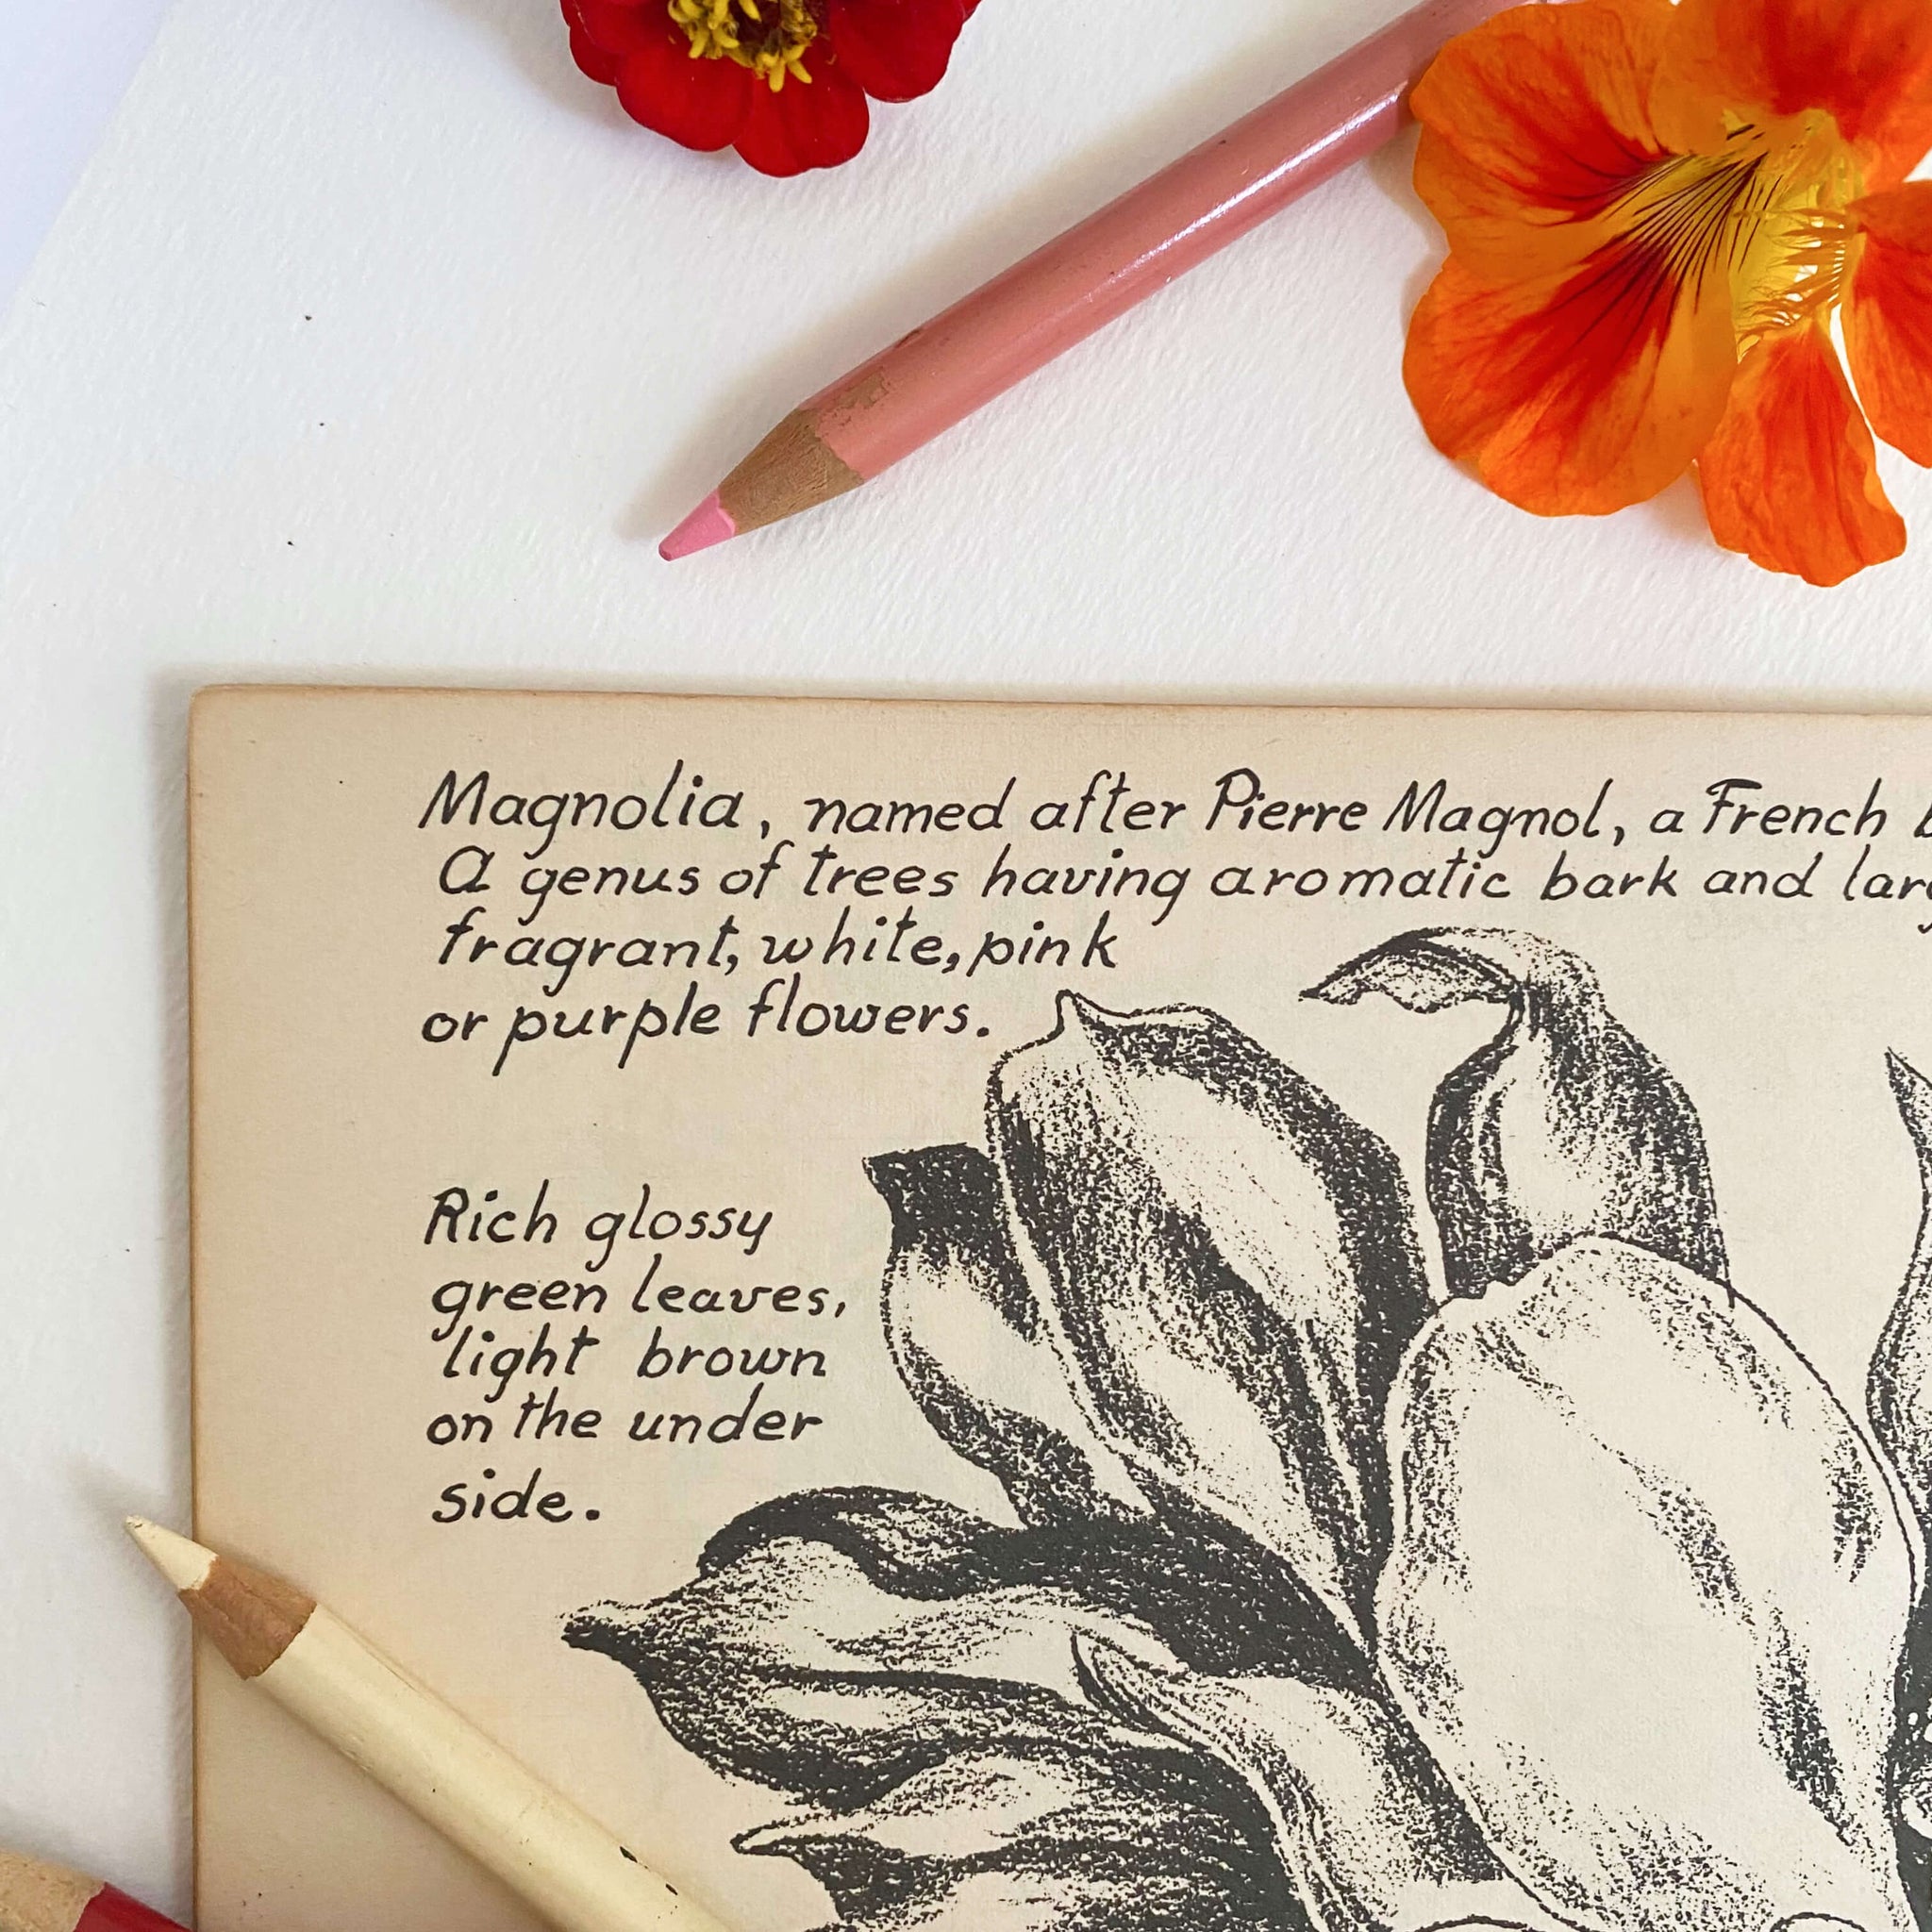 Magnolia, named after Pierre Magnol, a French
A genus of trees having aromatic bark and
fragrant, white, pink
or purple flowers.
Rich glossy
green leaves,
light brown
on the under
side.